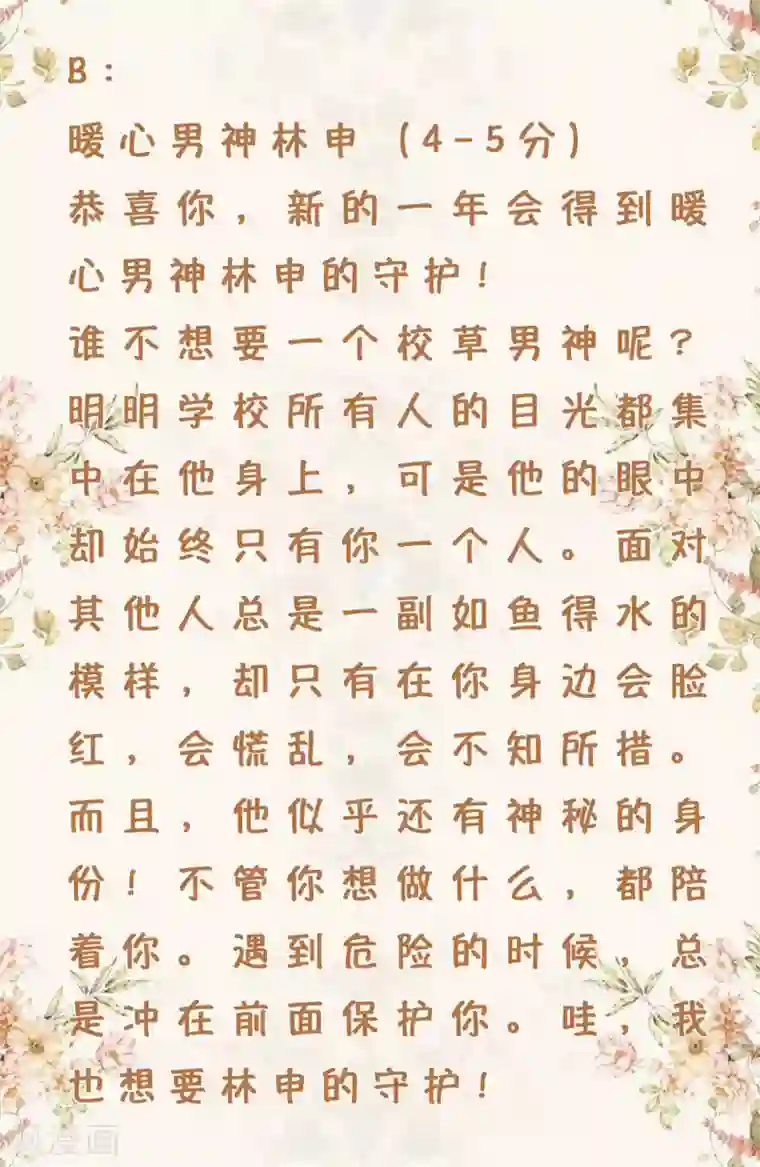 B：
暖心男神林申（4-5分）
恭喜你，新的一年会得到暖
心男神林申的守护！
谁不想要一个校草男神呢？
明明学校所有人的目光都集
中在他身上，可是他的眼中
却始终只有你一个人。面对
其他人总是一副如鱼得水的
模样，却只有在你身边会脸
红，会慌乱，会不知所措。
而且，他似乎还有神秘的身
份！不管你想做什么，都陪
着你。遇到危险的时候，总
是冲在前面保护你。哇，我
也想要林申的守护！